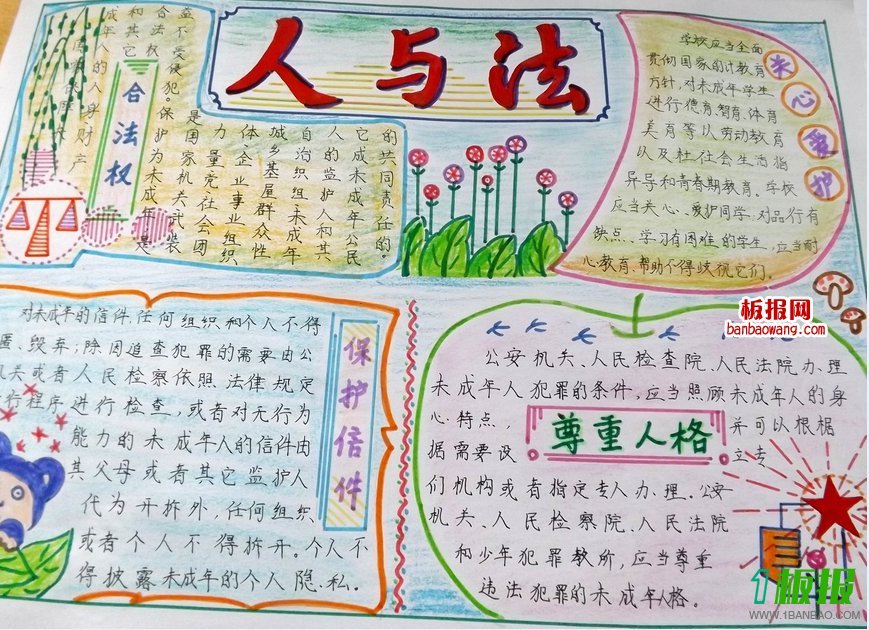 人与法
合法权
成年人的人身财产
和其它
合法权
益不受侵犯。保护为未成年
是国家机关武装
力量党社会团
体、企业事业组织
城乡基层群众性
自治织组未成年
人的监护人和其
它成未成年公民
的共同责任的。
关心爱护
学校应当全面
贯彻国家的计教育
方针,对未成年学生
进行德育智育、体育
美育等以劳动教育
以及社社会生活指
异导和青春期教育。学校
应当关心、爱护同学,对品行有
缺点、学习有困难的学生,应当耐
心教育、帮助不得歧视它们。
板报网
banbaowang.com
保护信件
对未成年的信件,任何组织和个人不得
匿、毁弃;除因追查犯罪的需要由公
机关或者人民检察依照法律规定
行程序进行检查,或者对无行为
能力的未成年人的信件由
其父母或者其它监护人
代为开拆外,任何组织
或者个人不得拆开。个人不
得披露未成年的个人隐私。
尊重人格
公安机关、人民检查院、人民法院办理
未成年人犯罪的条件,应当照顾未成年人的身
心特点,并可以根椐
据需要设立专
们机构或者指定专人办理。公安
机关、人民检察院、人民法院
和少年犯罪教所,应当尊重
违法犯罪的未成年人格。
1板报
WWW.1BANBAO.COM